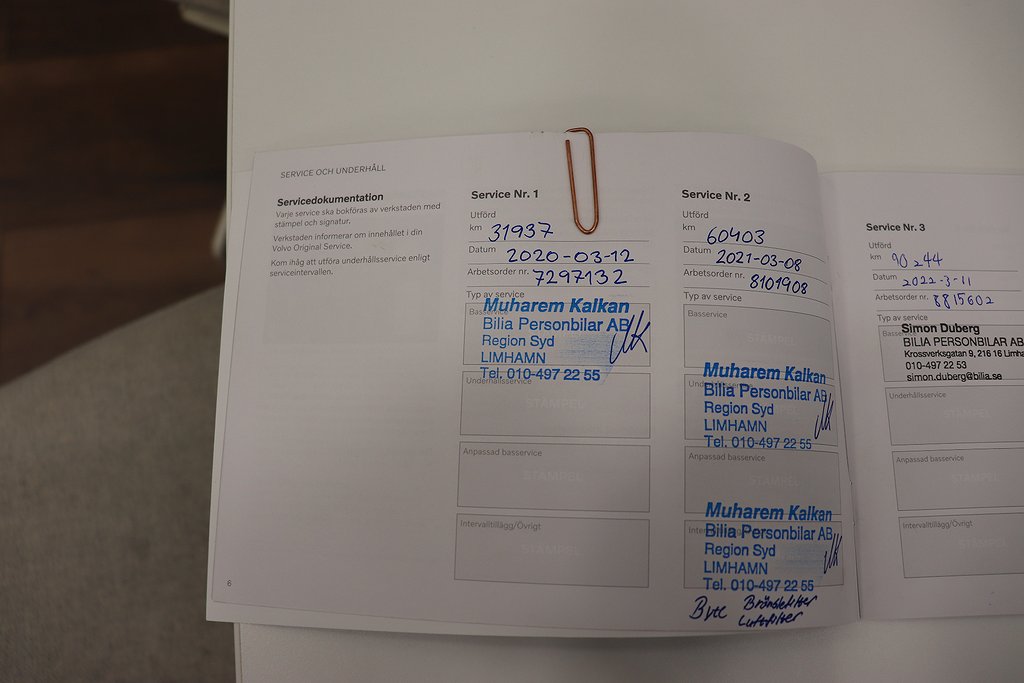 SERVICE OCH UNDERHÅLL
Servicedokumentation
Varje service ska bokföras av verkstaden med
stämpel och signatur.
Verkstaden informerar om innehållet i din
Volvo Original Service.
Kom ihåg att utföra underhållsservice enligt
serviceintervallen.
6
Service Nr. 1
Utförd
km 31937
Datum 2020-03-12
Arbetsorder nr. 7297132
Typ av service
Muharem Kalkan
Bilia Personbilar AB
Region Syd
LIMHAMN
Tel. 010-497 22 55
Underhållsservice
STÄMPEL
Anpassad basservice
STÄMPEL
Intervalltillägg/Övrigt
STÄMPEL
Service Nr. 2
Utförd
km 60403
Datum 2021-03-08
Arbetsorder nr. 8101908
Typ av service
Basservice
STÄMPEL
Muharem Kalkan
Bilia Personbilar AB
Region Syd
LIMHAMN
Tel. 010-497 22 55
Anpassad basservice
STÄMPEL
Muharem Kalkan
Bilia Personbilar AB
Region Syd
LIMHAMN
Tel. 010-497 22 55
Byte Bränslefilter
Luftfilter
Service Nr. 3
Utförd
km 90244
Datum 2022-3-11
Arbetsorder nr. 8815602
Typ av service
Simon Duberg
BILIA PERSONBILAR AB
Krossverksgatan 9, 216 16 Limha
010-497 22 53
simon.duberg@bilia.se
Underhållsservice
STÄMPEL
Anpassad basservice
STÄMPEL
Intervalltillägg/Övrigt
STÄMPEL